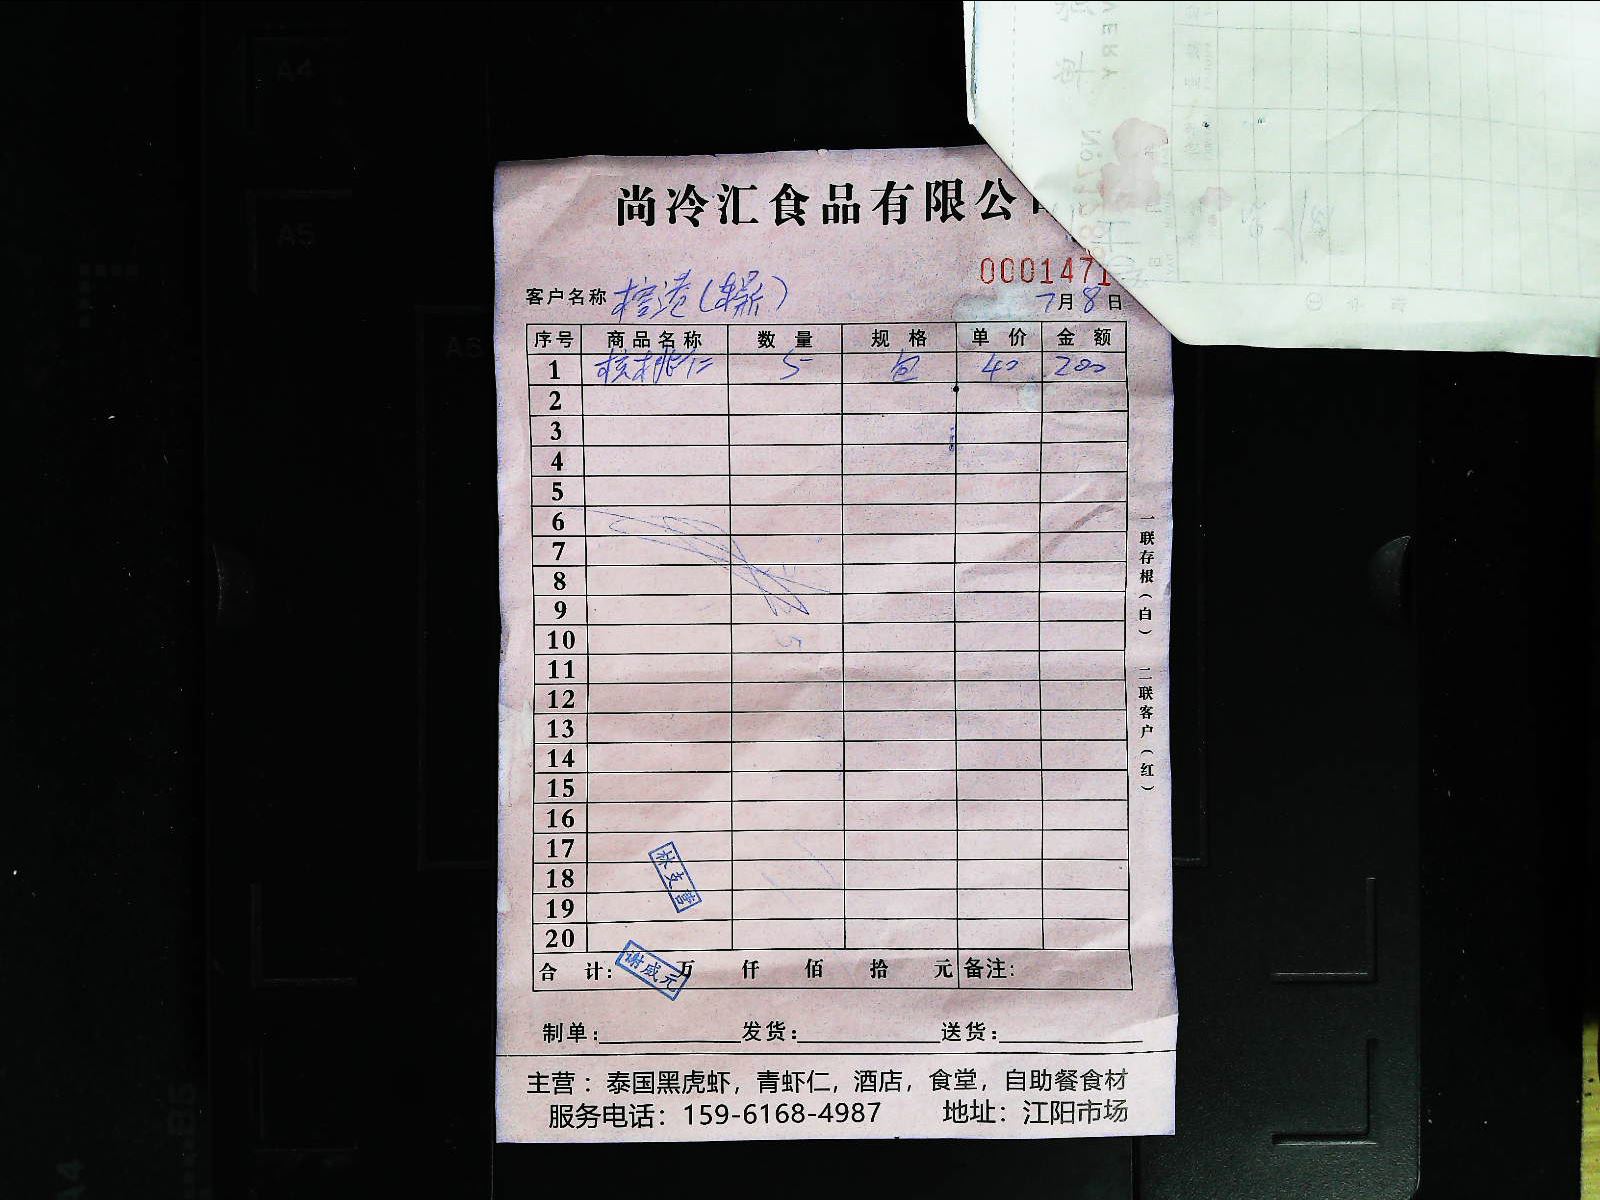 尚冷汇食品有限公
0001471
客户名称
7月8日
序号 商品名称 数量 规格 单价 金额
1 核桃仁 5 包 40 200
2
3
4
5
6
7
8
9
10
11
12
13
14
15
16
17
18
19
20
林支营
谢成元
合计: 万 仟 佰 拾 元 备注:
制单: 发货: 送货:
主营：泰国黑虎虾，青虾仁，酒店，食堂，自助餐食材
服务电话：159-6168-4987 地址：江阳市场
一联存根（白） 二联客户（红）
A4
A5
A6